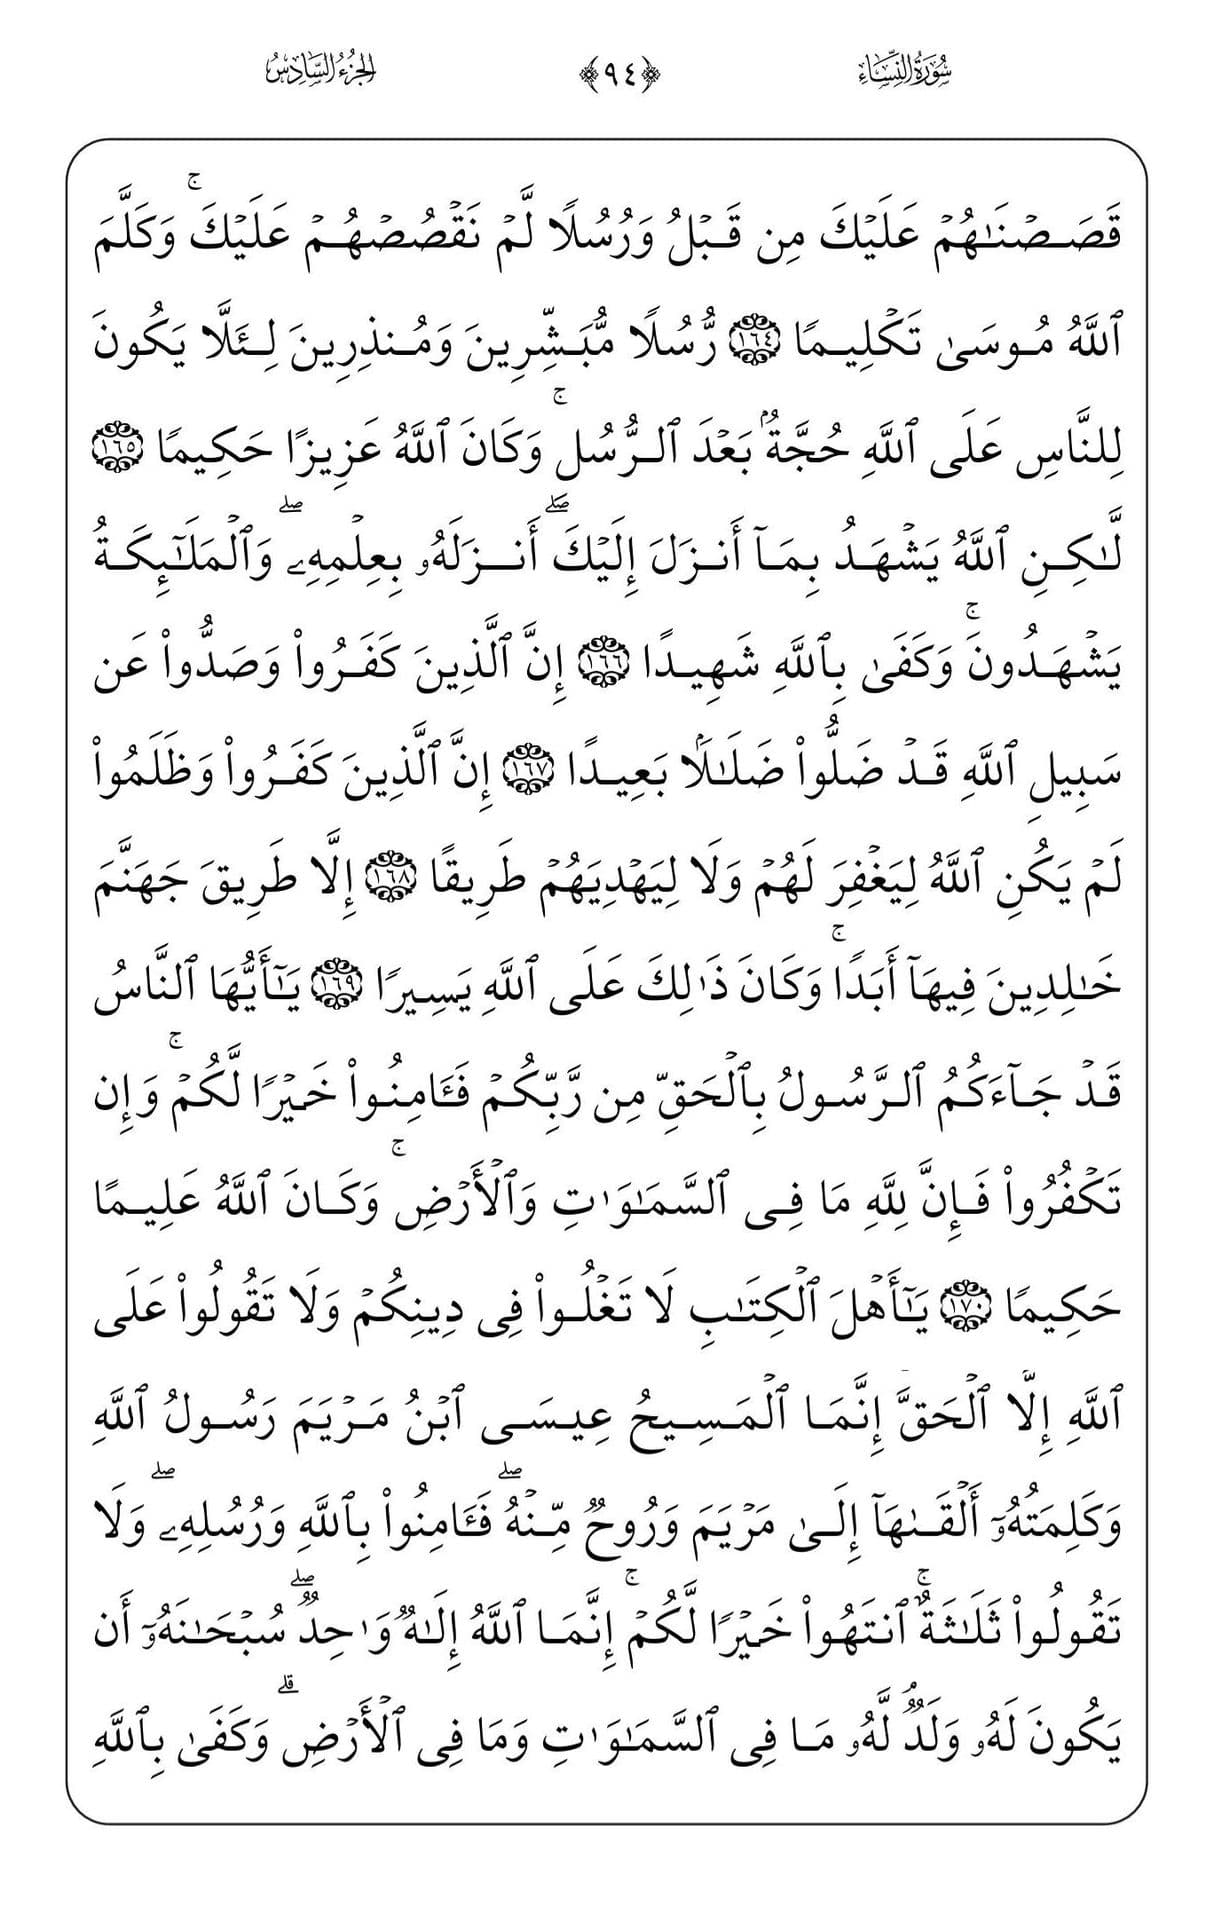 سُورَةُ النِّسَاءِ ﴿٩٤﴾ الجُزْءُ السَّادِسُ
قَصَصۡنَٰهُمۡ عَلَيۡكَ مِن قَبۡلُ وَرُسُلًا لَّمۡ نَقۡصُصۡهُمۡ عَلَيۡكَۚ وَكَلَّمَ
ٱللَّهُ مُوسَىٰ تَكۡلِيمًا ١٦٤ رُّسُلًا مُّبَشِّرِينَ وَمُنذِرِينَ لِئَلَّا يَكُونَ
لِلنَّاسِ عَلَى ٱللَّهِ حُجَّةُۢ بَعۡدَ ٱلرُّسُلِۚ وَكَانَ ٱللَّهُ عَزِيزًا حَكِيمًا ١٦٥
لَّٰكِنِ ٱللَّهُ يَشۡهَدُ بِمَآ أَنزَلَ إِلَيۡكَۖ أَنزَلَهُۥ بِعِلۡمِهِۦۖ وَٱلۡمَلَٰٓئِكَةُ
يَشۡهَدُونَۚ وَكَفَىٰ بِٱللَّهِ شَهِيدًا ١٦٦ إِنَّ ٱلَّذِينَ كَفَرُواْ وَصَدُّواْ عَن
سَبِيلِ ٱللَّهِ قَدۡ ضَلُّواْ ضَلَٰلَۢا بَعِيدًا ١٦٧ إِنَّ ٱلَّذِينَ كَفَرُواْ وَظَلَمُواْ
لَمۡ يَكُنِ ٱللَّهُ لِيَغۡفِرَ لَهُمۡ وَلَا لِيَهۡدِيَهُمۡ طَرِيقًا ١٦٨ إِلَّا طَرِيقَ جَهَنَّمَ
خَٰلِدِينَ فِيهَآ أَبَدًاۚ وَكَانَ ذَٰلِكَ عَلَى ٱللَّهِ يَسِيرًا ١٦٩ يَٰٓأَيُّهَا ٱلنَّاسُ
قَدۡ جَآءَكُمُ ٱلرَّسُولُ بِٱلۡحَقِّ مِن رَّبِّكُمۡ فَـَٔامِنُواْ خَيۡرًا لَّكُمۡۚ وَإِن
تَكۡفُرُواْ فَإِنَّ لِلَّهِ مَا فِى ٱلسَّمَٰوَٰتِ وَٱلۡأَرۡضِۚ وَكَانَ ٱللَّهُ عَلِيمًا
حَكِيمًا ١٧٠ يَٰٓأَهۡلَ ٱلۡكِتَٰبِ لَا تَغۡلُواْ فِى دِينِكُمۡ وَلَا تَقُولُواْ عَلَى
ٱللَّهِ إِلَّا ٱلۡحَقَّۚ إِنَّمَا ٱلۡمَسِيحُ عِيسَى ٱبۡنُ مَرۡيَمَ رَسُولُ ٱللَّهِ
وَكَلِمَتُهُۥٓ أَلۡقَىٰهَآ إِلَىٰ مَرۡيَمَ وَرُوحٌ مِّنۡهُۖ فَـَٔامِنُواْ بِٱللَّهِ وَرُسُلِهِۦۖ وَلَا
تَقُولُواْ ثَلَٰثَةٌۚ ٱنتَهُواْ خَيۡرًا لَّكُمۡۚ إِنَّمَا ٱللَّهُ إِلَٰهٌ وَٰحِدٌۖ سُبۡحَٰنَهُۥٓ أَن
يَكُونَ لَهُۥ وَلَدٌۘ لَّهُۥ مَا فِى ٱلسَّمَٰوَٰتِ وَمَا فِى ٱلۡأَرۡضِۗ وَكَفَىٰ بِٱللَّهِ